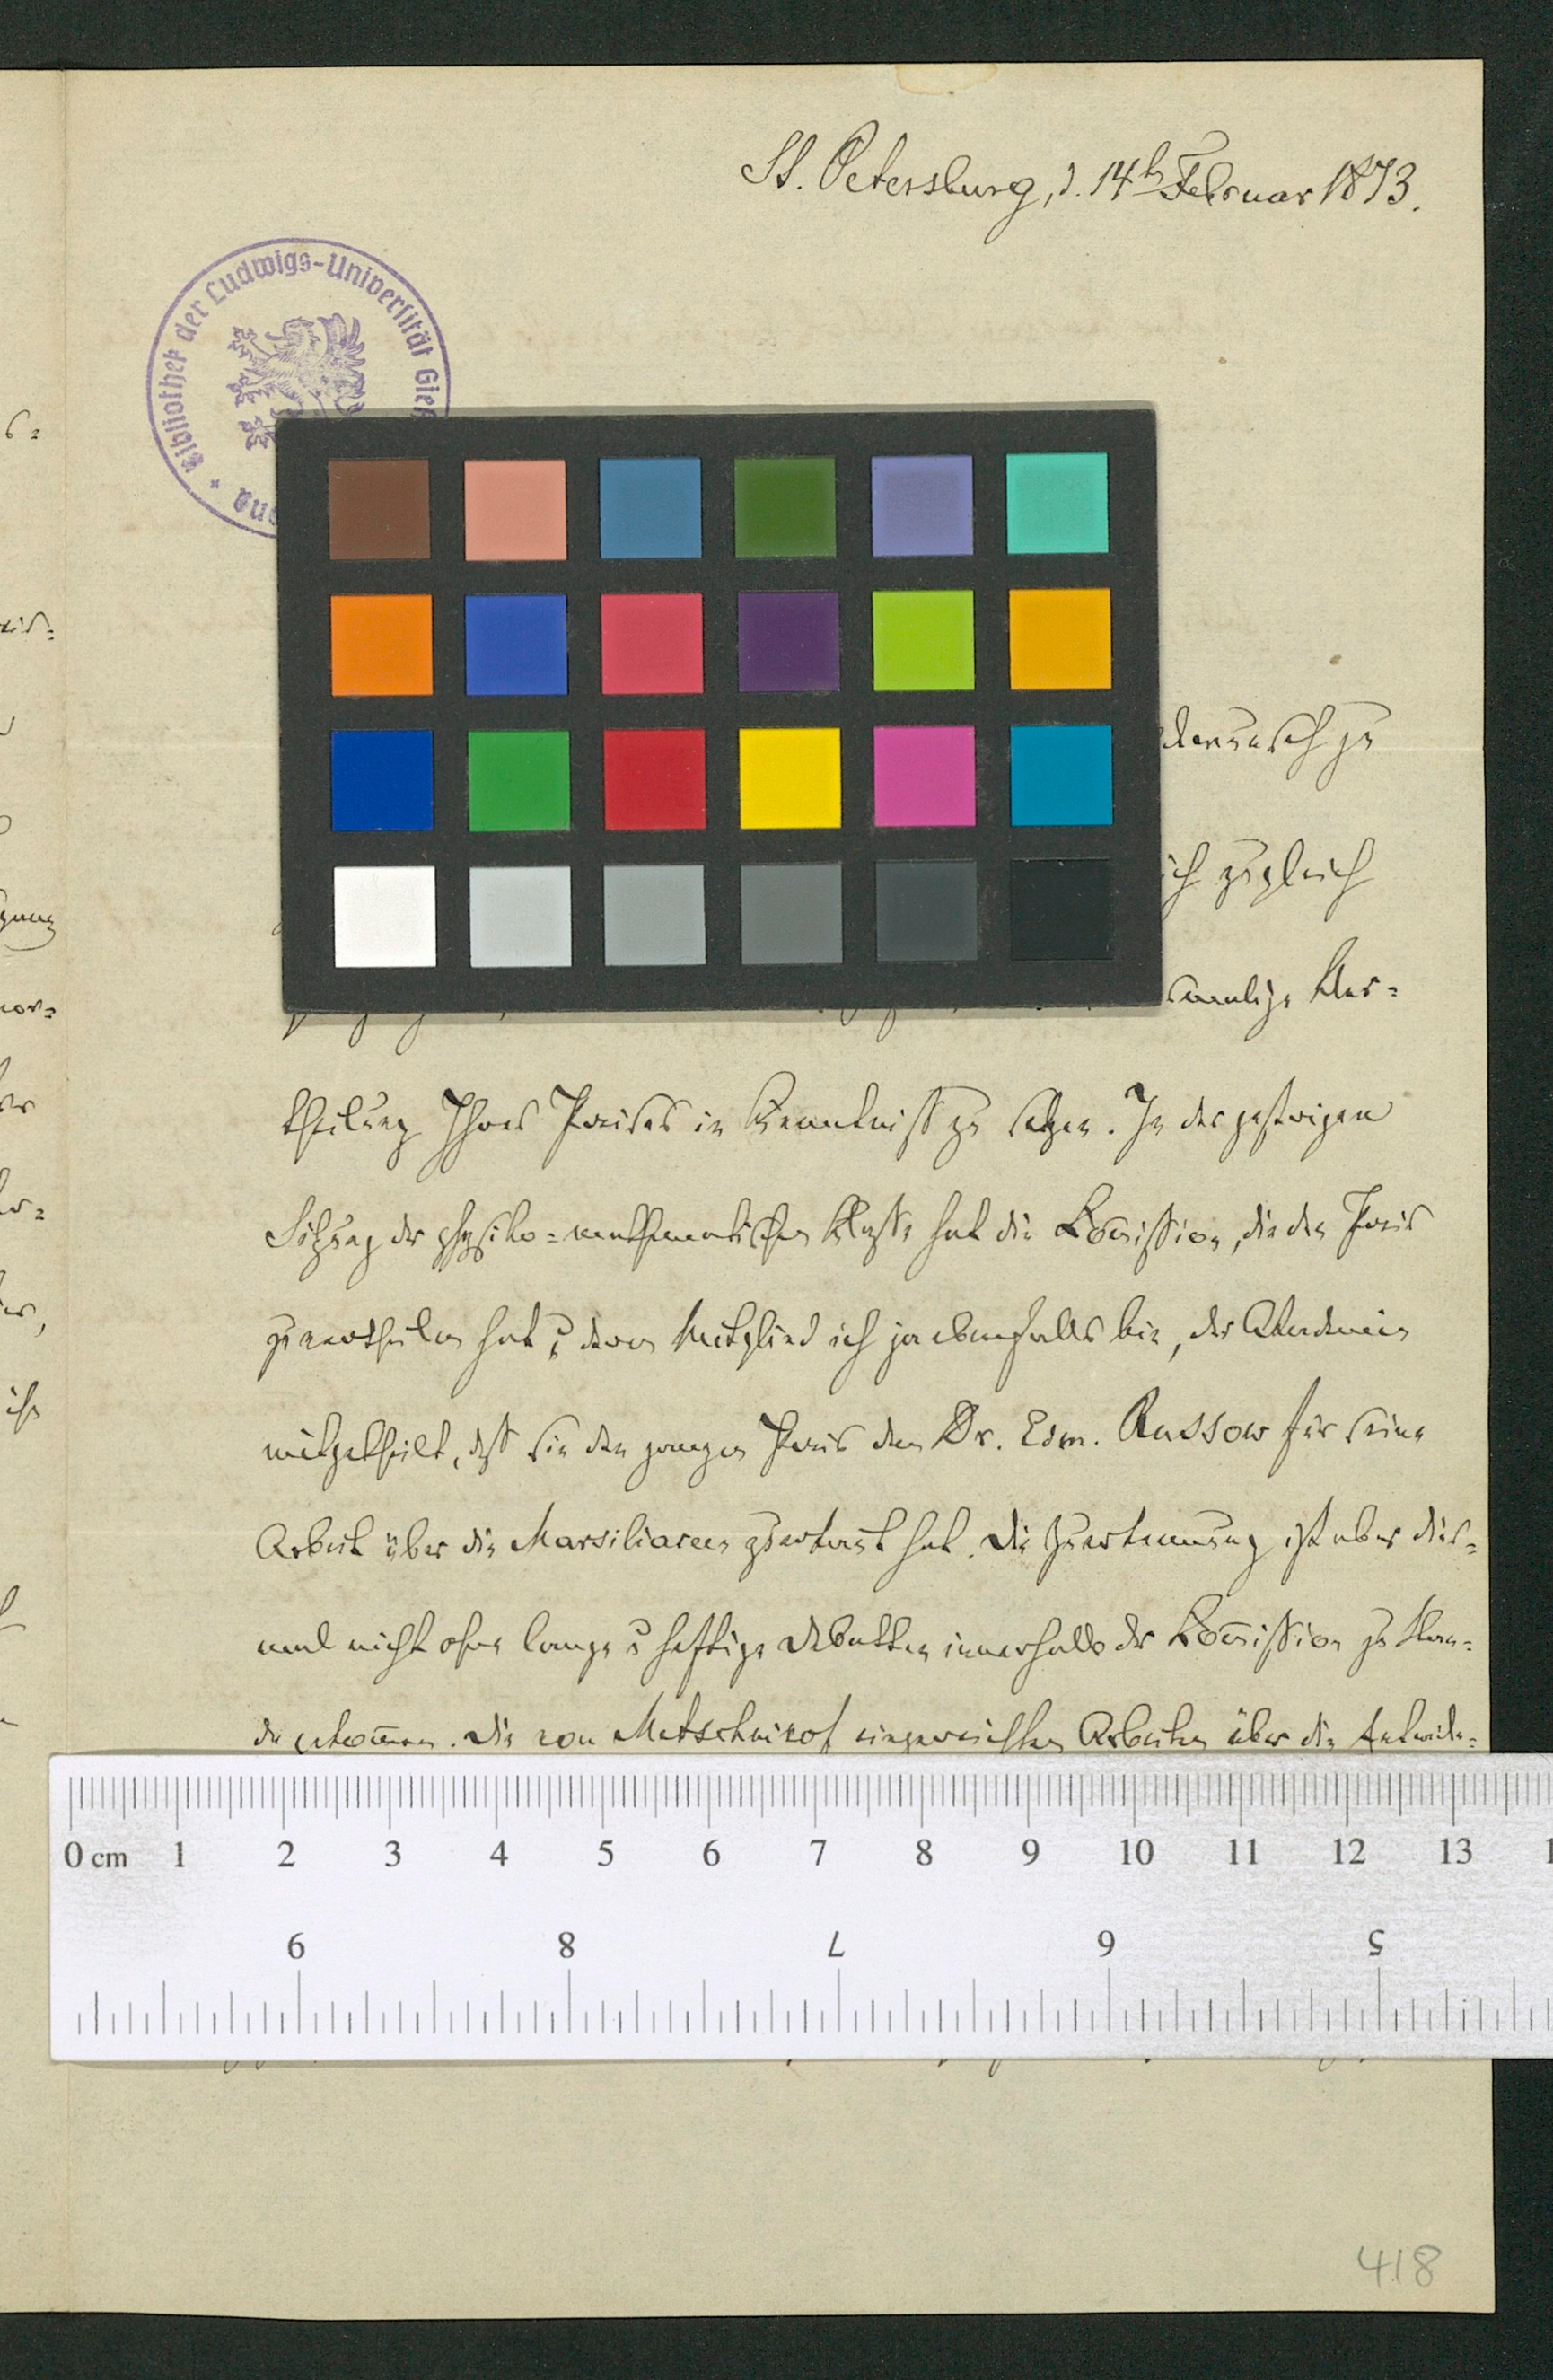 St. Petersburg, d. 14ten Februar 1873.
Bibliothek der Ludwigs-Universität Gie
ana
zu
ich zugleich
malige Ver=
theilung Ihres Preises in Kenntniss zu setzen. In der gestrigen
Sitzung der physiko=mathematischen Klasse hat die Kom̄ission, die den Preis
zu ertheilen hat u. deren Mitglied ich ja ebenfalls bin, der Akademie
mitgetheilt, dass sie den ganzen Preis dem Dr. Edm. Russow für seine
Arbeit über die Marsiliaceen zuerkannt hat. Die Zuerkennung ist aber dies=
mal nicht ohne lange u. heftige Debatten innerhalb der Kom̄ission zu Stan=
de gekom̄en. Die von Metschnikof eingereichten Arbeiten über die Entwicke=
0 cm 1 2 3 4 5 6 7 8 9 10 11 12 13 1
9 8 7 6 5
418